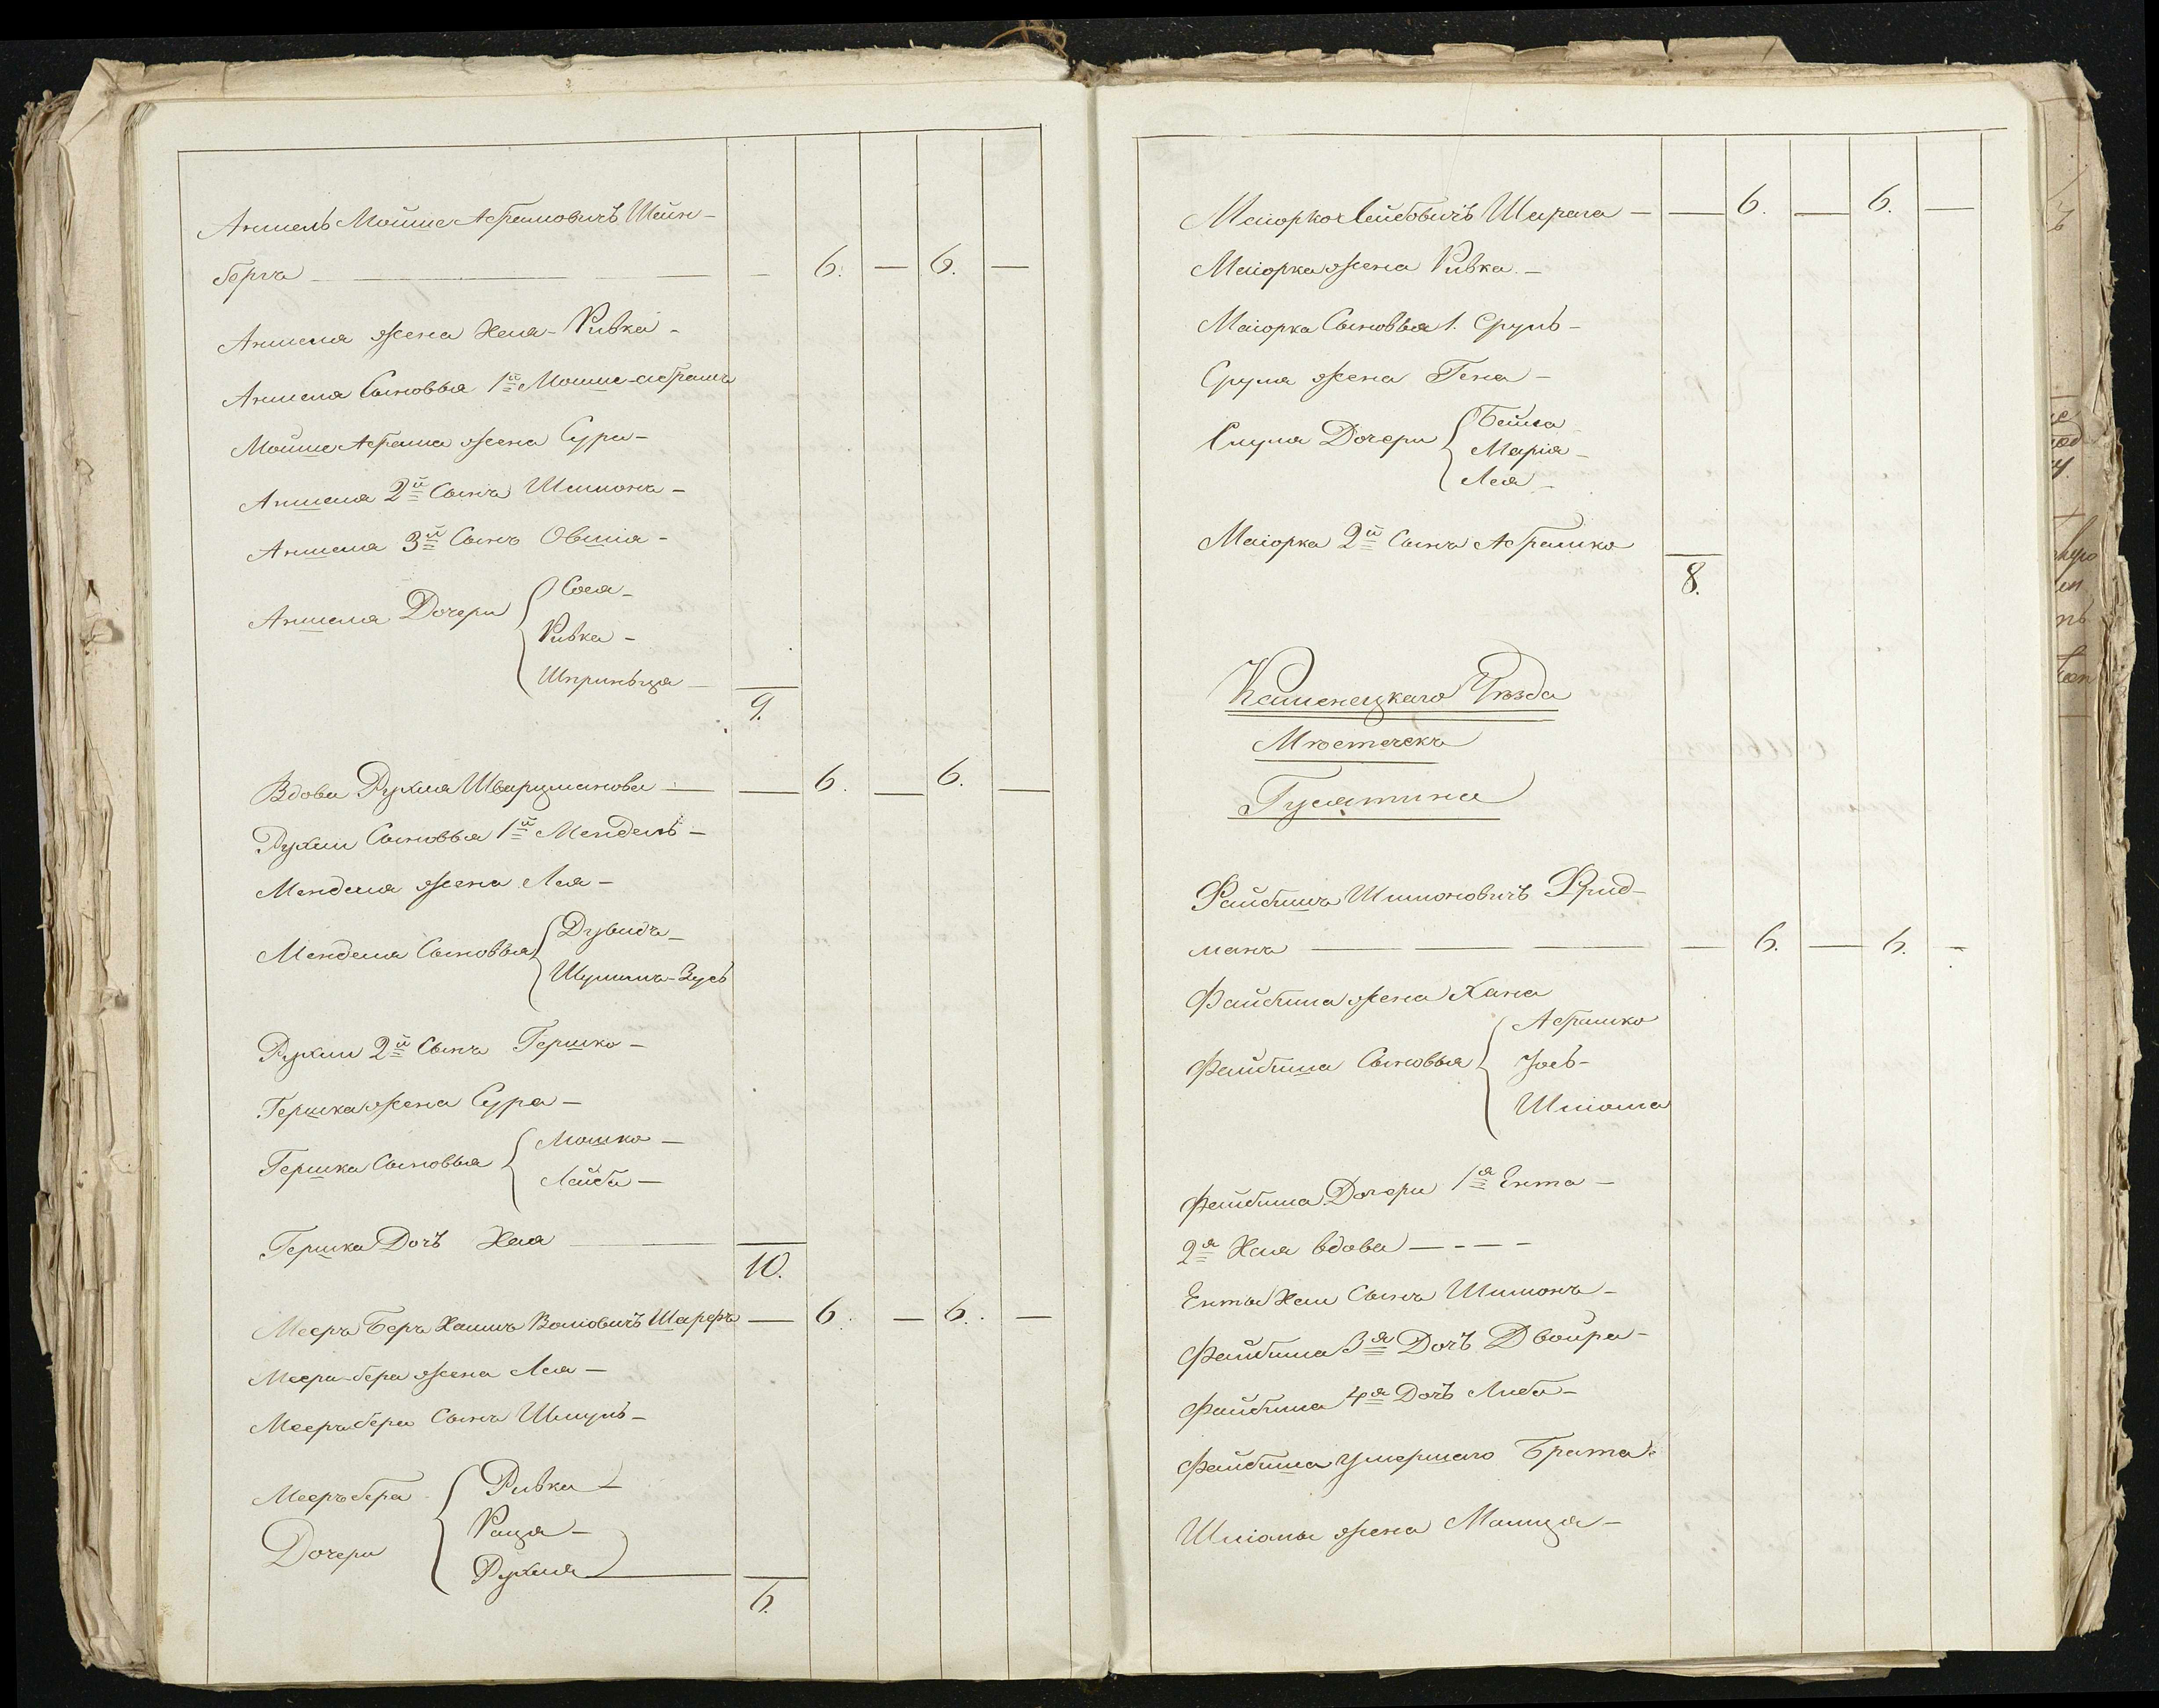 Аншель Мойше Абрамовичъ Шейн-
берга — 6. — 6. —
Аншеля жена Хая-Ривка -
Аншеля Сыновья 1й Мошие-абрамъ
Мойше Абрама жена Сура -
Аншеля 2й Сынъ Шимонъ -
Аншеля 3й Сынъ Овшія -
Аншеля Дочери Сося -
Ривка -
Шпринъца -
9.
Вдова Рухля Шварцманова — 6. — 6. —
Рухли Сыновья 1й Мендель -
Менделя жена Лея -
Менделя Сыновья Дувидъ -
Шулимъ-Зусь
Рухли 2й Сынъ Гершко -
Гершка жена Сура -
Гершка Сыновья Мошко -
Лейба -
Гершка Дочь Хая —
10.
Мееръ Беръ Хаимъ Волковичъ Шарфъ — 6. — 6. —
Меера-бера жена Лея -
Мееръ бера Сынъ Шмуль -
Мееръ бера Ривка -
Раца -
Дочери Рухля —
6.
Маіорко Лейбовичъ Шарага — 6. — 6. —
Маіорка жена Ривка -
Маіорка Сыновья 1. Сруль -
Сруля жена Гена -
Сруля Дочери Бейла
Марія -
Лея -
Маіорка 2й Сынъ Абрамко
8.
Каменецкаго Уѣзда
Мѣстечка
Гусятина
Файбишъ Шимоновичъ Фрид-
манъ — 6. — 6. -
Файбиша жена Хана
Файбиша Сыновья Абрамко
Іось -
Шліома
Файбиша Дочери 1я Ента -
2я Хая вдова - - - -
Енты Хаи Сынъ Шимонъ -
Файбиша 3я Дочь Двойра -
Файбиша 4я Дочь Либа -
Файбиша умершаго Брата
Шліомы жена Малця -